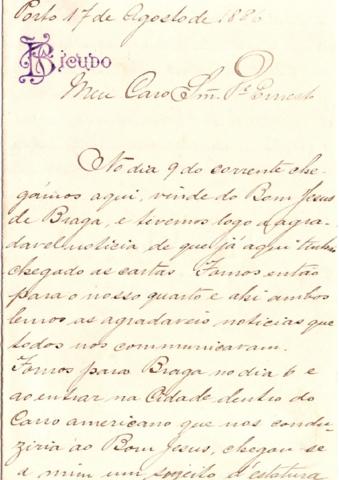 Porto 17 de Agosto de 1886
Bicudo
Meu Caro Sm. Pe. Ernesto
No dia 9 do corrente che-
gámos aqui, vindo do Bom Jesus
de Braga, e tivemos logo a agra-
davel noticia, de que já aqui tinham
chegado as cartas. Fomos então
para o nosso quarto e ahi ambos
lemos as agradaveis noticias que
todos nos communicaram.
Fomos para Braga no dia 6 e
ao entrar na Cidade dentro do
Carro americano que nos condu-
ziria ao Bom Jesus, chegou-se
a mim um sujeito d'estatura